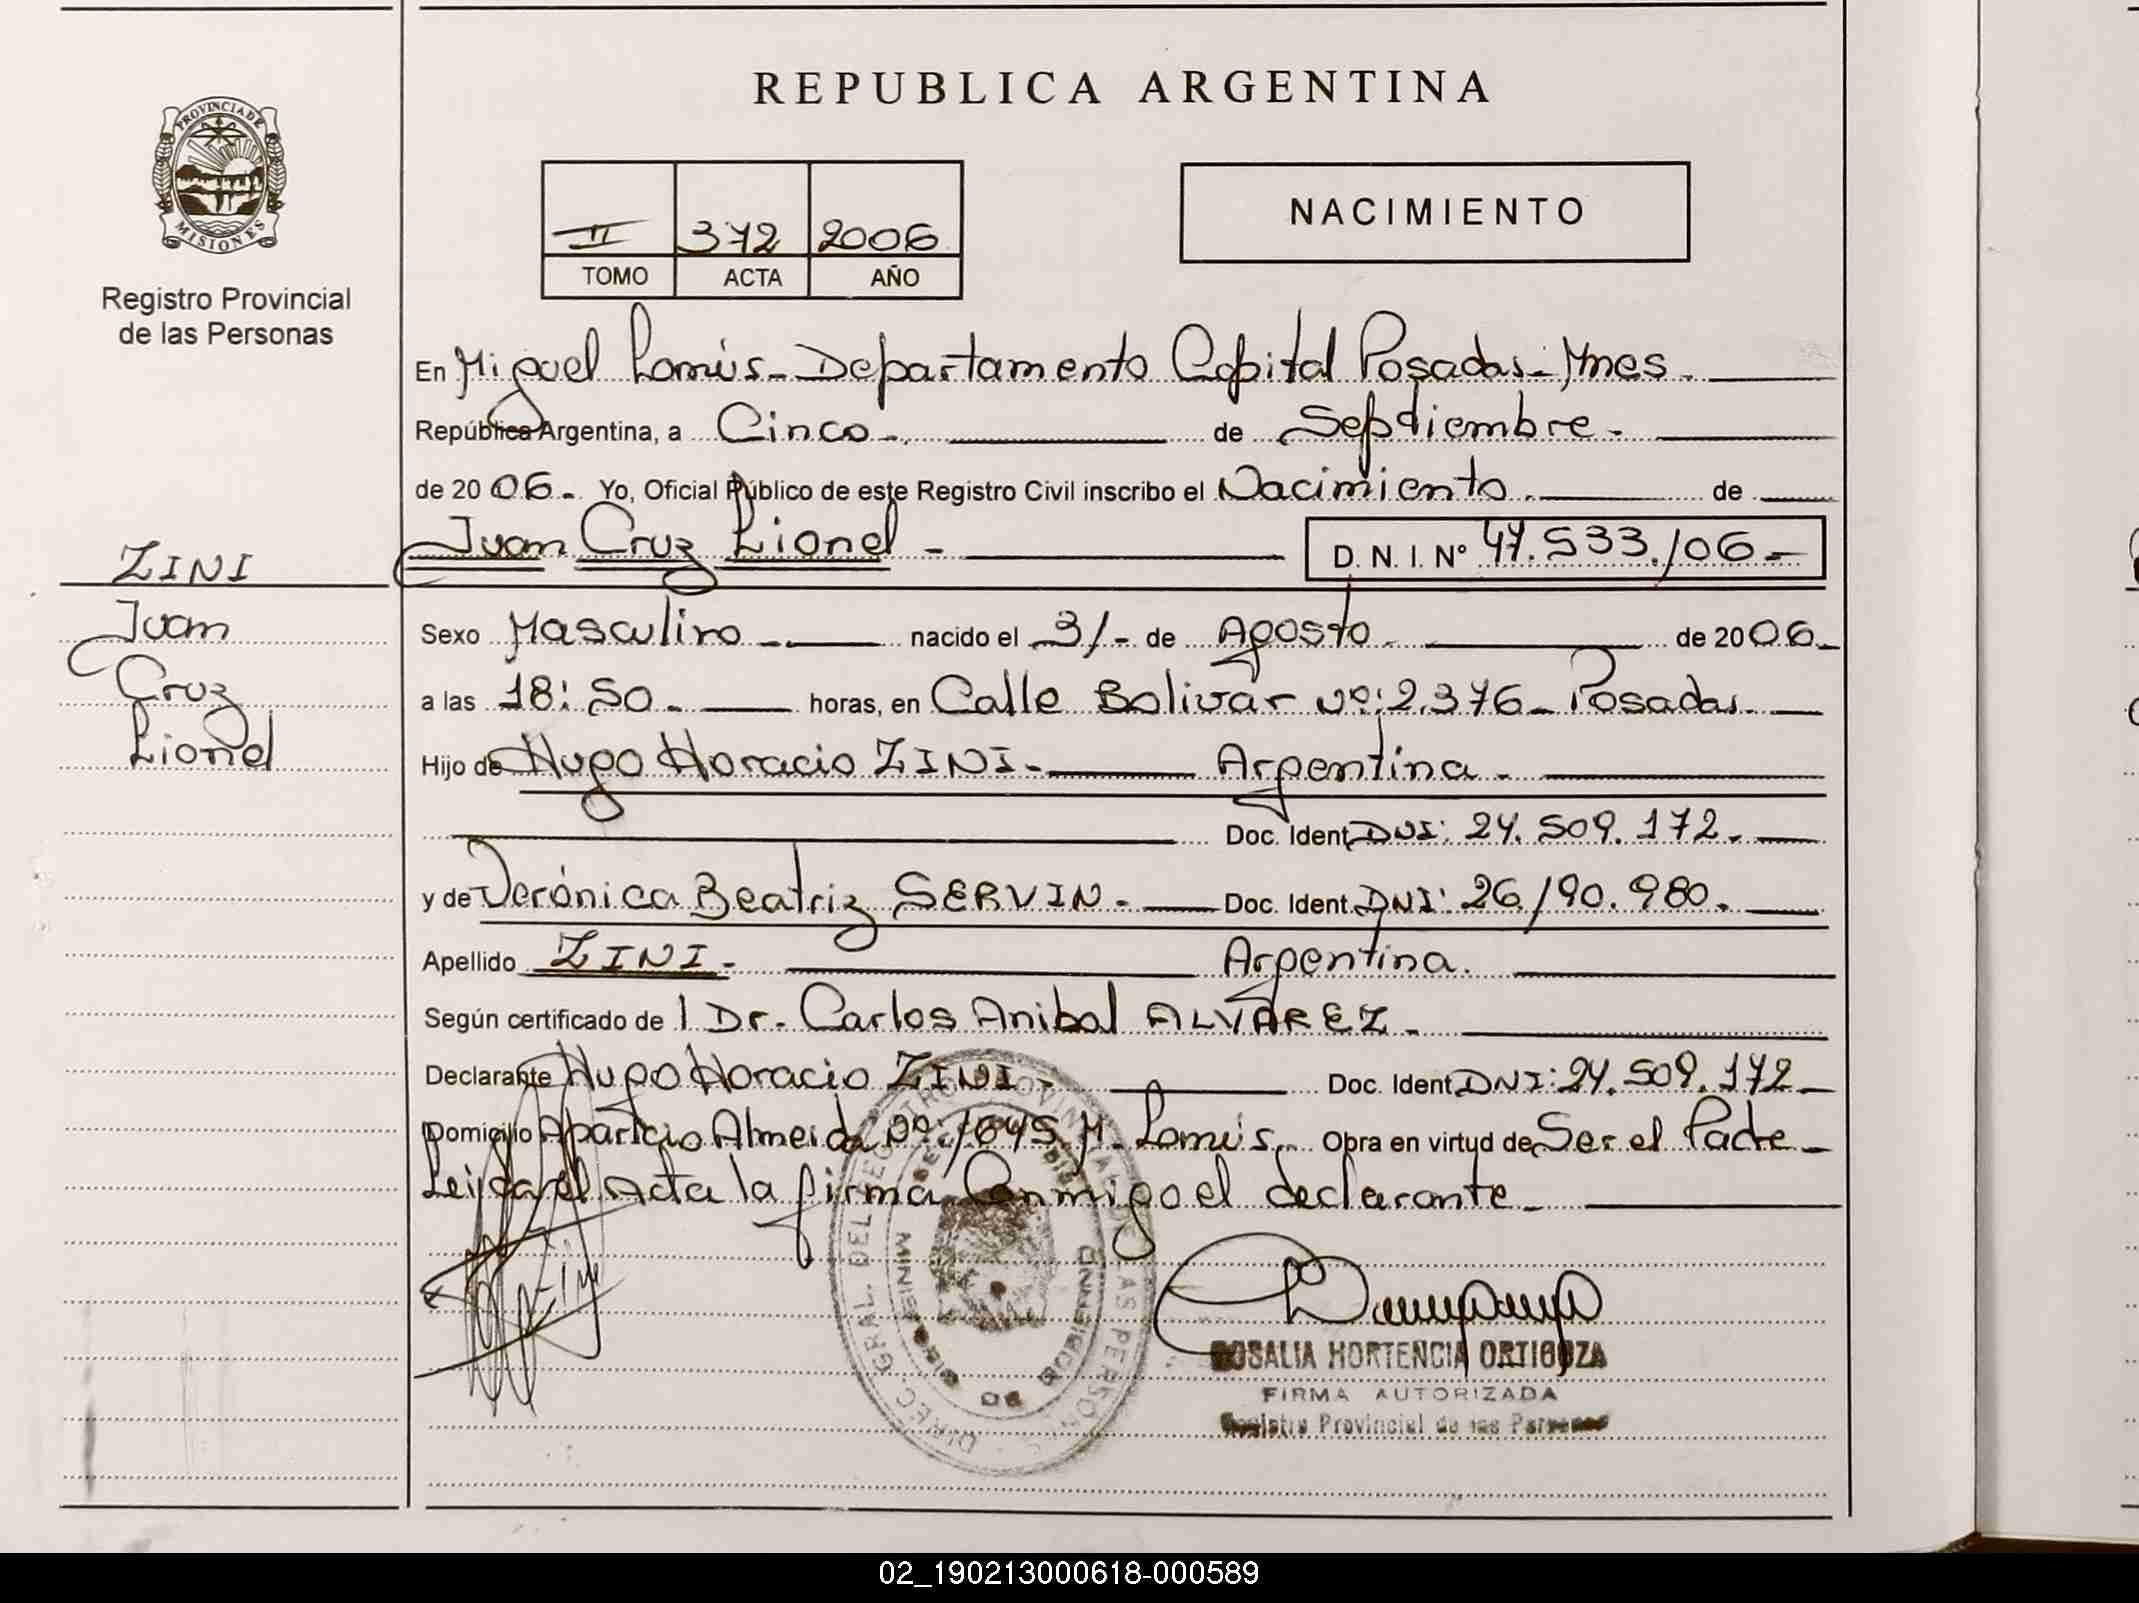 REPUBLICA ARGENTINA
PROVINCIA DE
MISIONES
Registro Provincial
de las Personas
II 372 2006
TOMO ACTA AÑO
NACIMIENTO
En Miguel Lanús - Departamento Capital Posadas - Mnes.
República Argentina, a Cinco - de Septiembre -
de 2006 - Yo, Oficial Público de este Registro Civil inscribo el Nacimiento. de
Juan Cruz Lionel -
D. N. I. Nº 47.533./06 -
ZINI
Juan
Cruz
Lionel
Sexo Masculino - nacido el 3/- de Agosto - de 2006 -
a las 18:50 - horas, en Calle Bolivar Nº: 2.376 - Posadas -
Hijo de Hugo Horacio ZINI - Argentina -
Doc. Ident. DNI: 24.509.172 -
y de Verónica Beatriz SERVIN - Doc. Ident. DNI: 26./90.980.
Apellido ZINI - Argentina.
Según certificado de l Dr. Carlos Anibal ALVAREZ -
Declarante Hugo Horacio ZINI - Doc. Ident. DNI: 24.509.172 -
Domicilio Aparicio Almeida Nº: /645 M. Lanús - Obra en virtud de Ser el Padre -
Leída el Acta la firma Conmigo el declarante -
ROSALIA HORTENCIA ORTIGOZA
FIRMA AUTORIZADA
Registro Provincial de las Personas
02_190213000618-000589